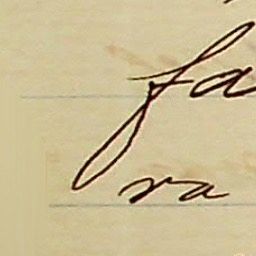 fa
ra